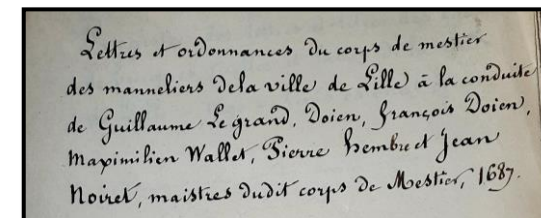 Lettres et ordonnances du corps de mestier
des manneliers dela ville de Lille à la conduite
de Guillaume Legrand, Doien, françois Doien,
Maximilien Wallet, Pierre hembre et Jean
Noiret, maistres dudit corps de Mestier, 1687.